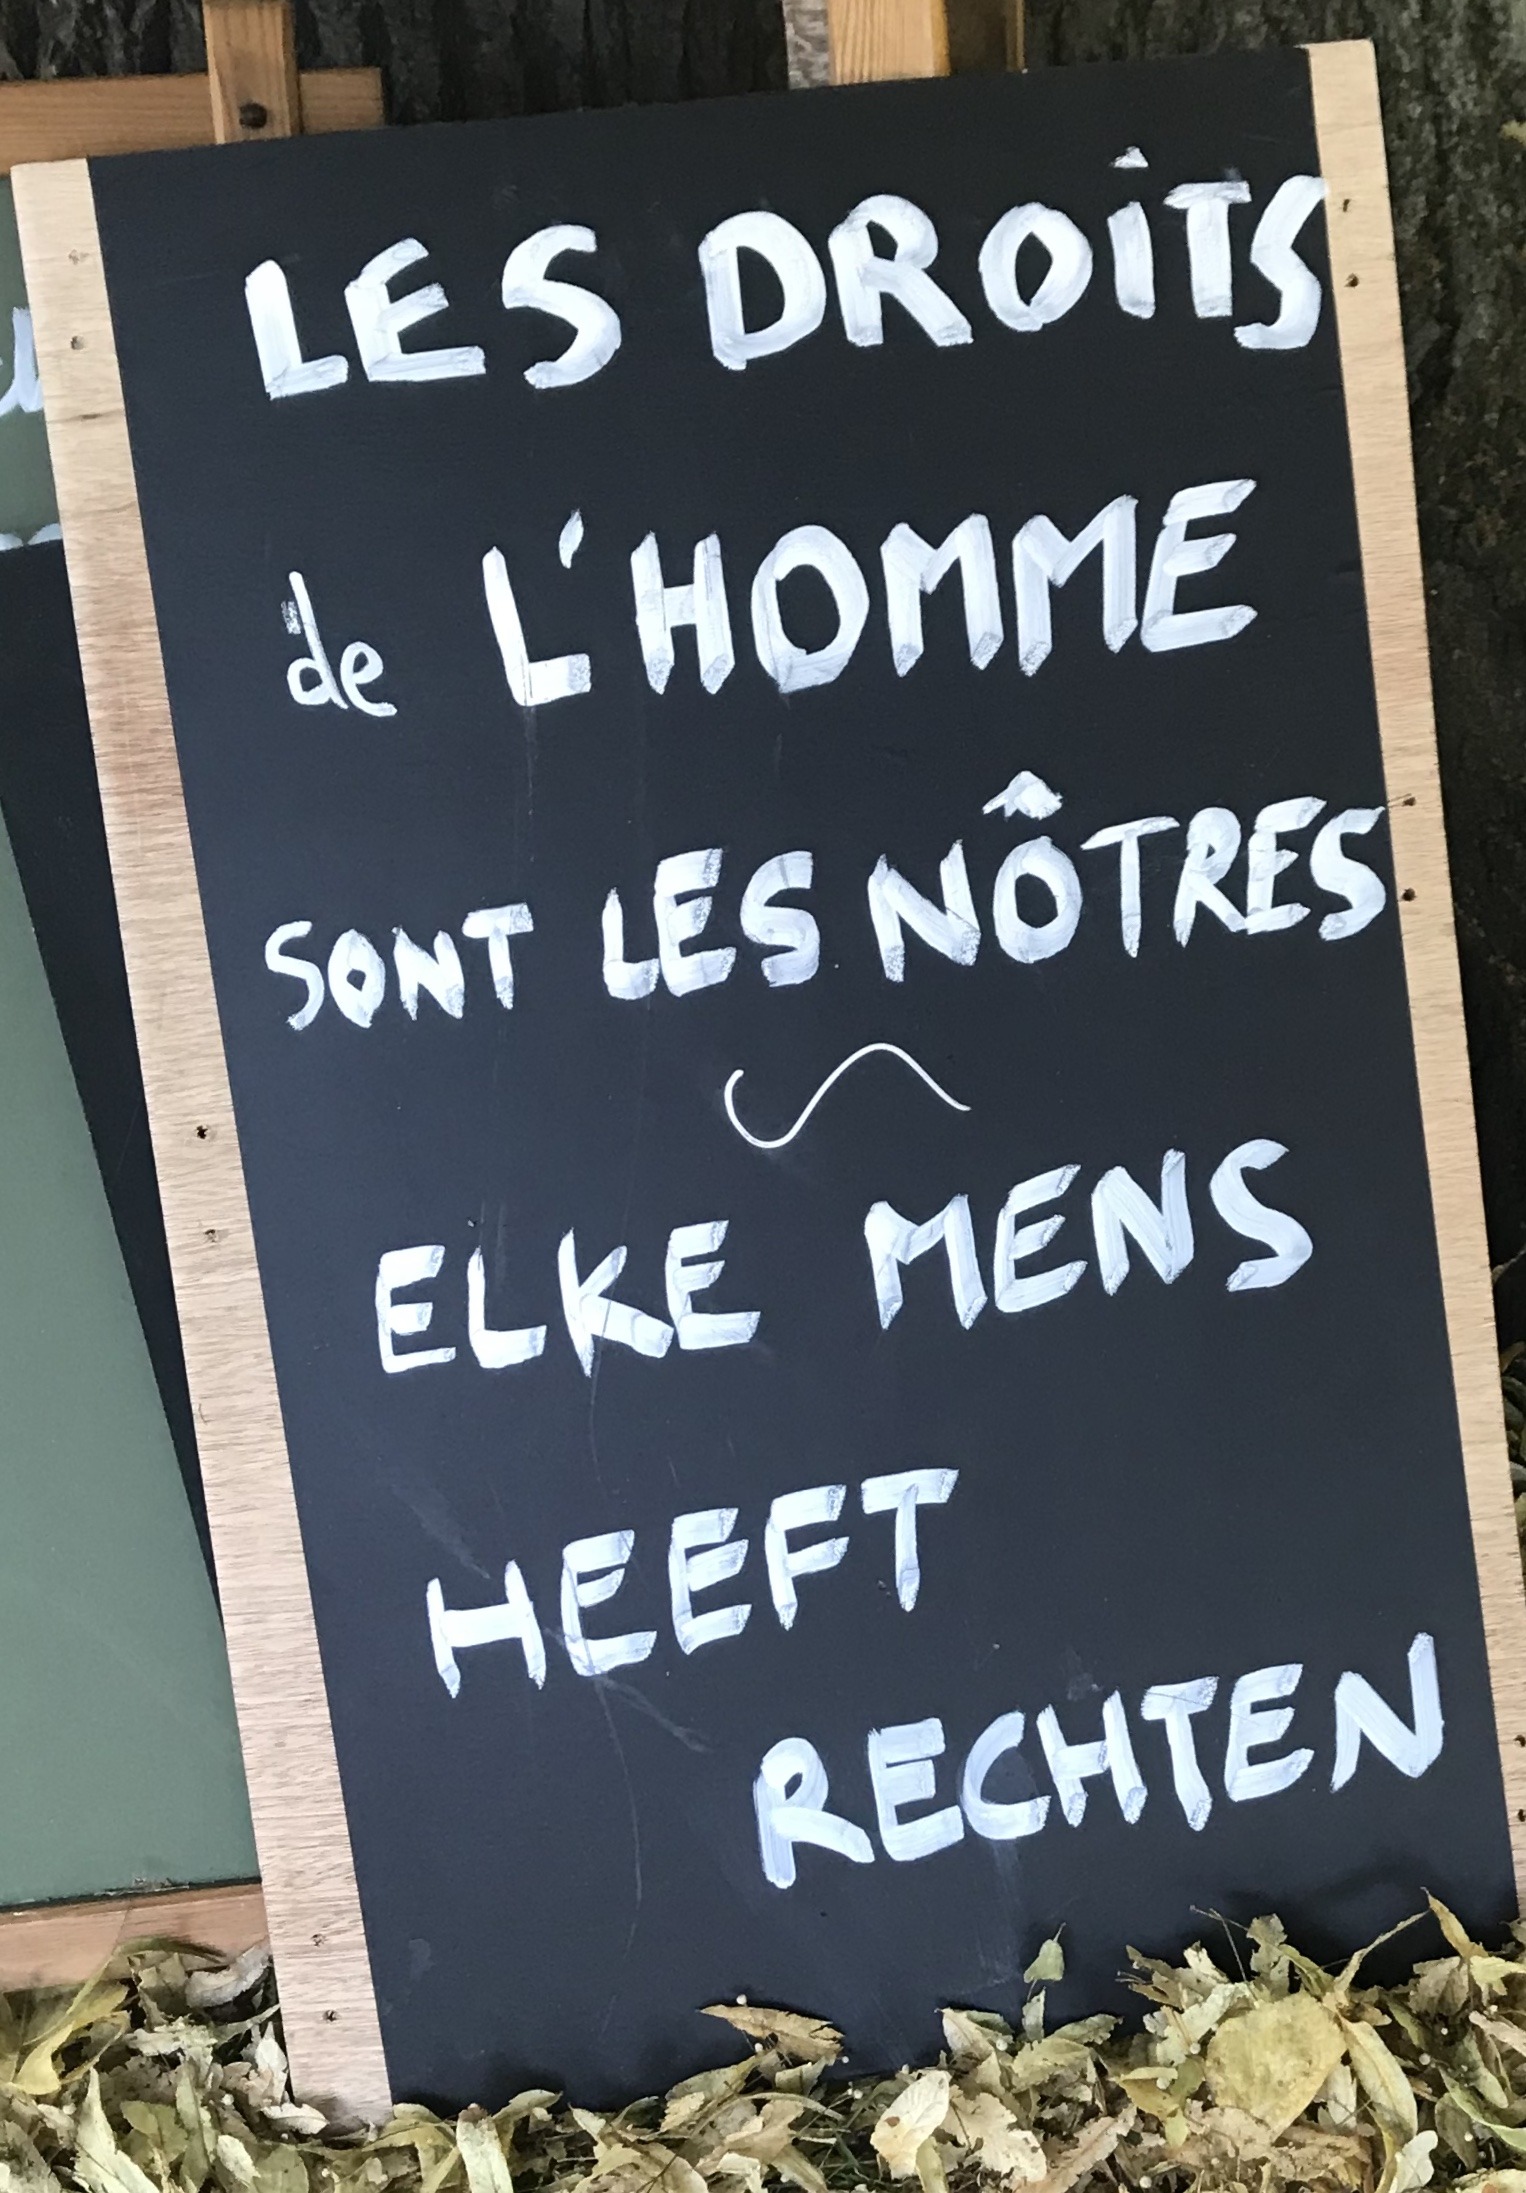 LES DROiTS
de L'HOMME
SONT LES NÔTRES
ELKE MENS
HEEFT
RECHTEN